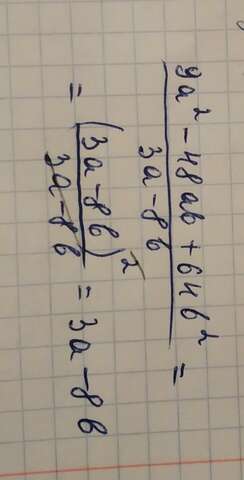 9a² - 48ab + 64b²
3a - 8b =
= (3a - 8b)²
3a - 8b = 3a - 8b